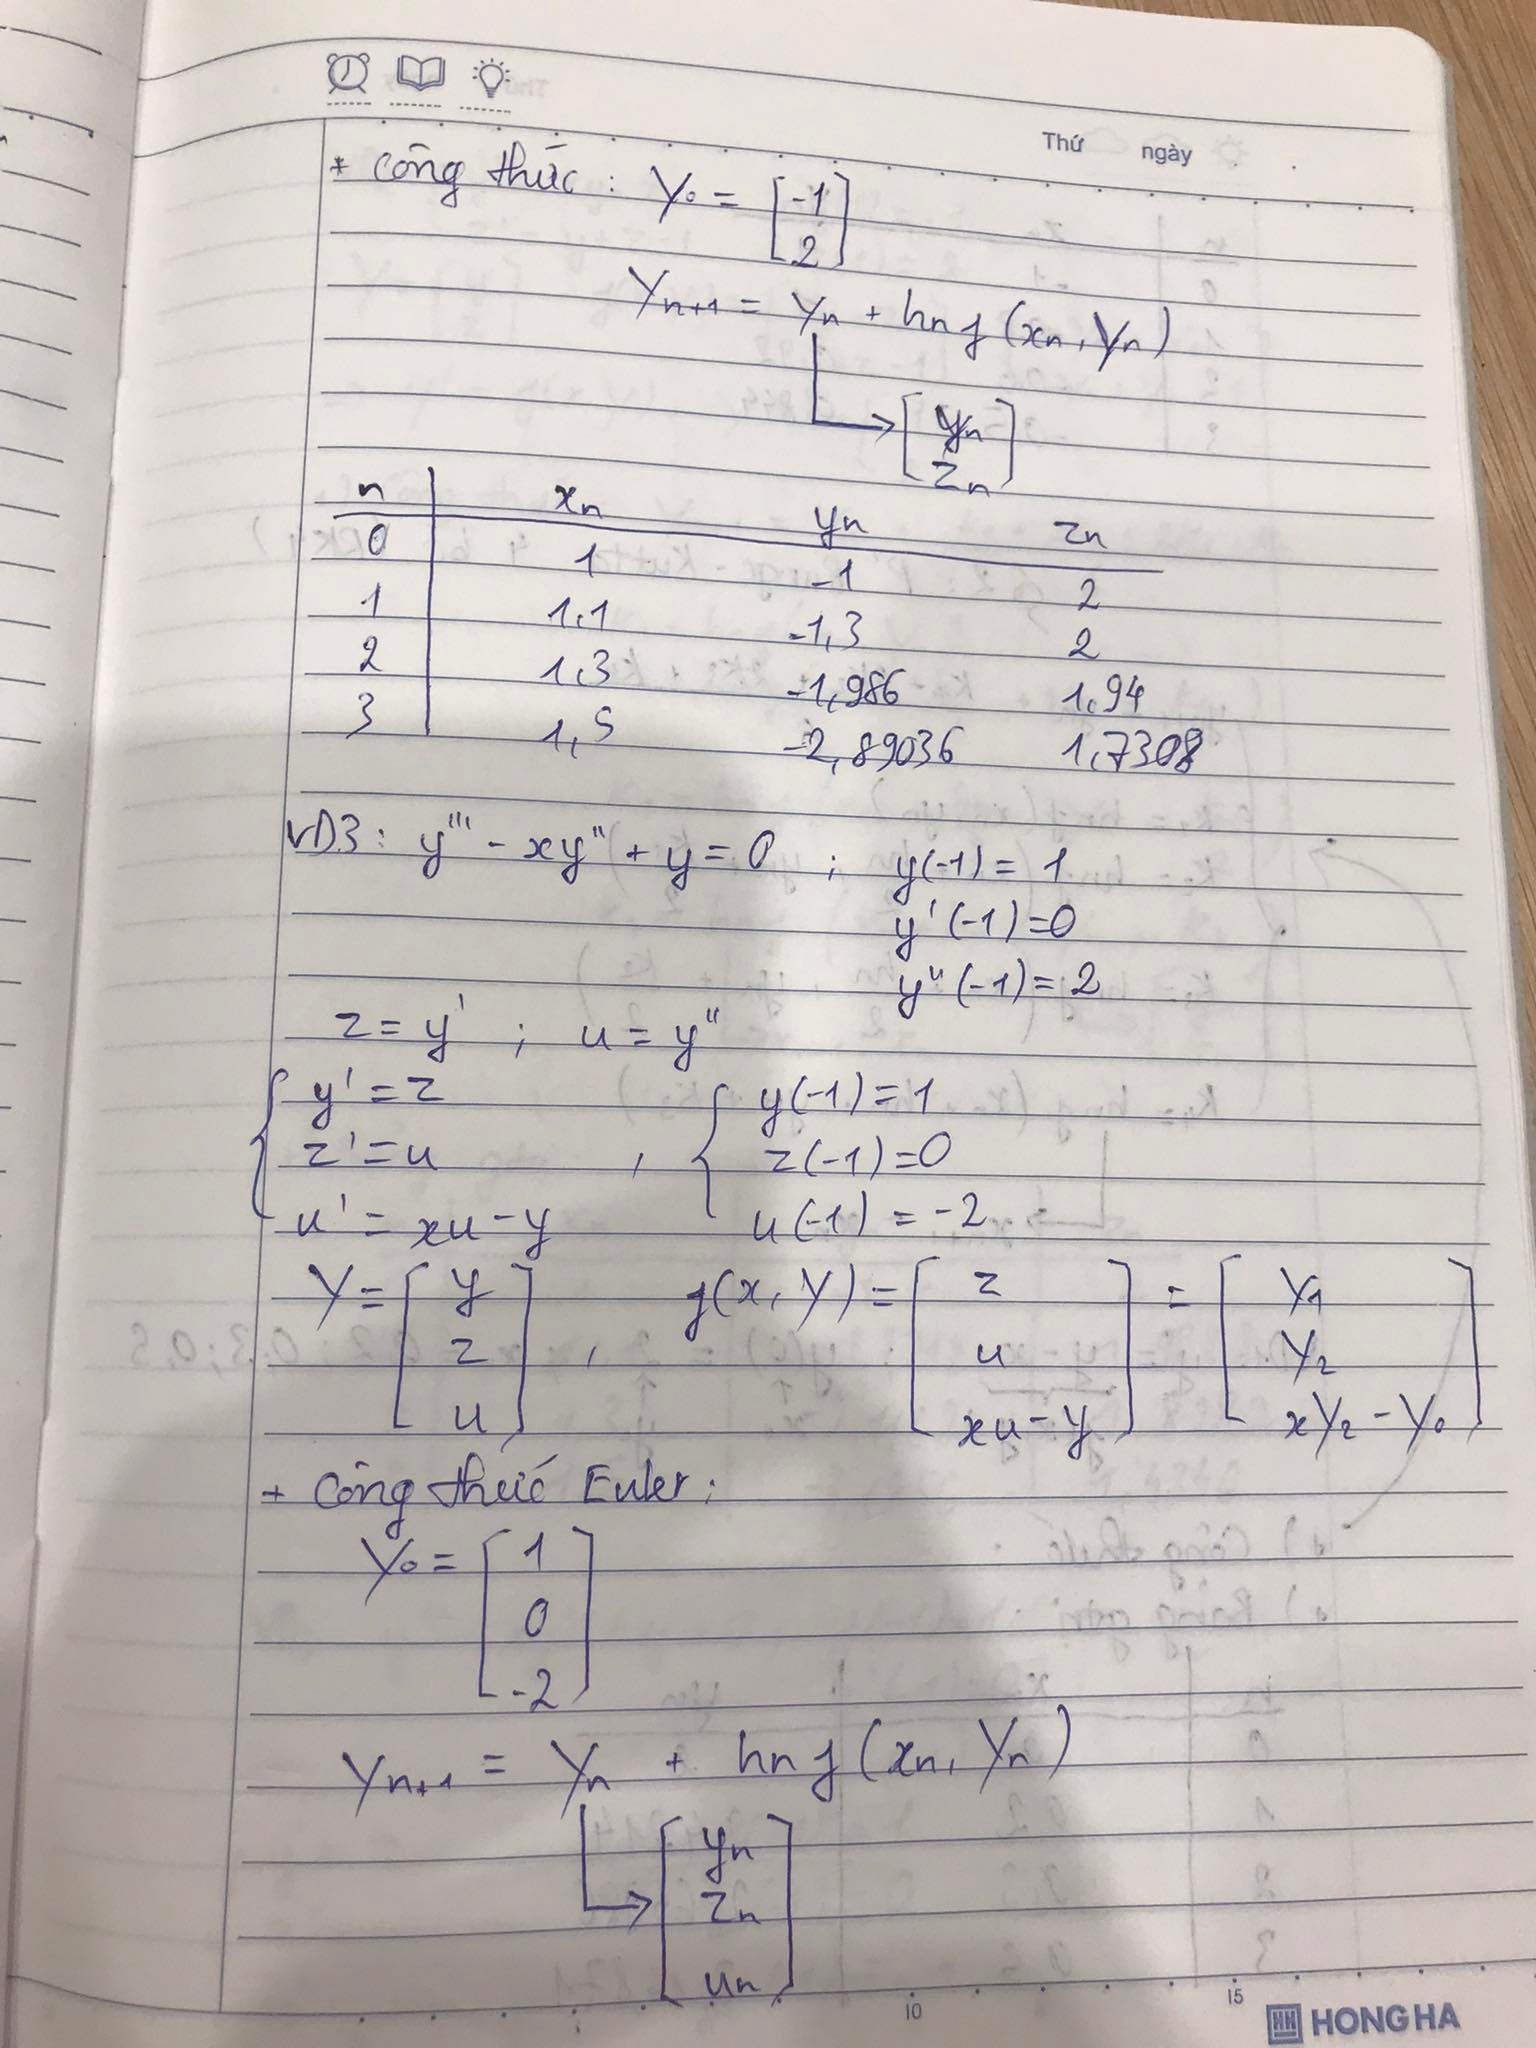 Thứ ngày
* Công thức: Y₀ = [-1
2]
Yₙ₊₁ = Yₙ + hₙ f(xₙ, Yₙ)
→ [yₙ
zₙ]
n xₙ yₙ zₙ
0 1 -1 2
1 1,1 -1,3 2
2 1,3 -1,986 1,94
3 1,5 -2,89036 1,7308
VD3: y''' - xy'' + y = 0 ; y(-1) = 1
y'(-1) = 0
y''(-1) = 2
z = y' ; u = y''
{ y' = z { y(-1) = 1
z' = u , z(-1) = 0
u' = xu - y u(-1) = -2
Y = [ y f(x, Y) = [ z = [ Y₁
z , u Y₂
u ] xu - y ] xY₂ - Y₀ ]
+ Công thức Euler:
Y₀ = [ 1
0
-2 ]
Yₙ₊₁ = Yₙ + hₙ f(xₙ, Yₙ)
→ [ yₙ
zₙ
uₙ ]
10 15
HH HONG HA